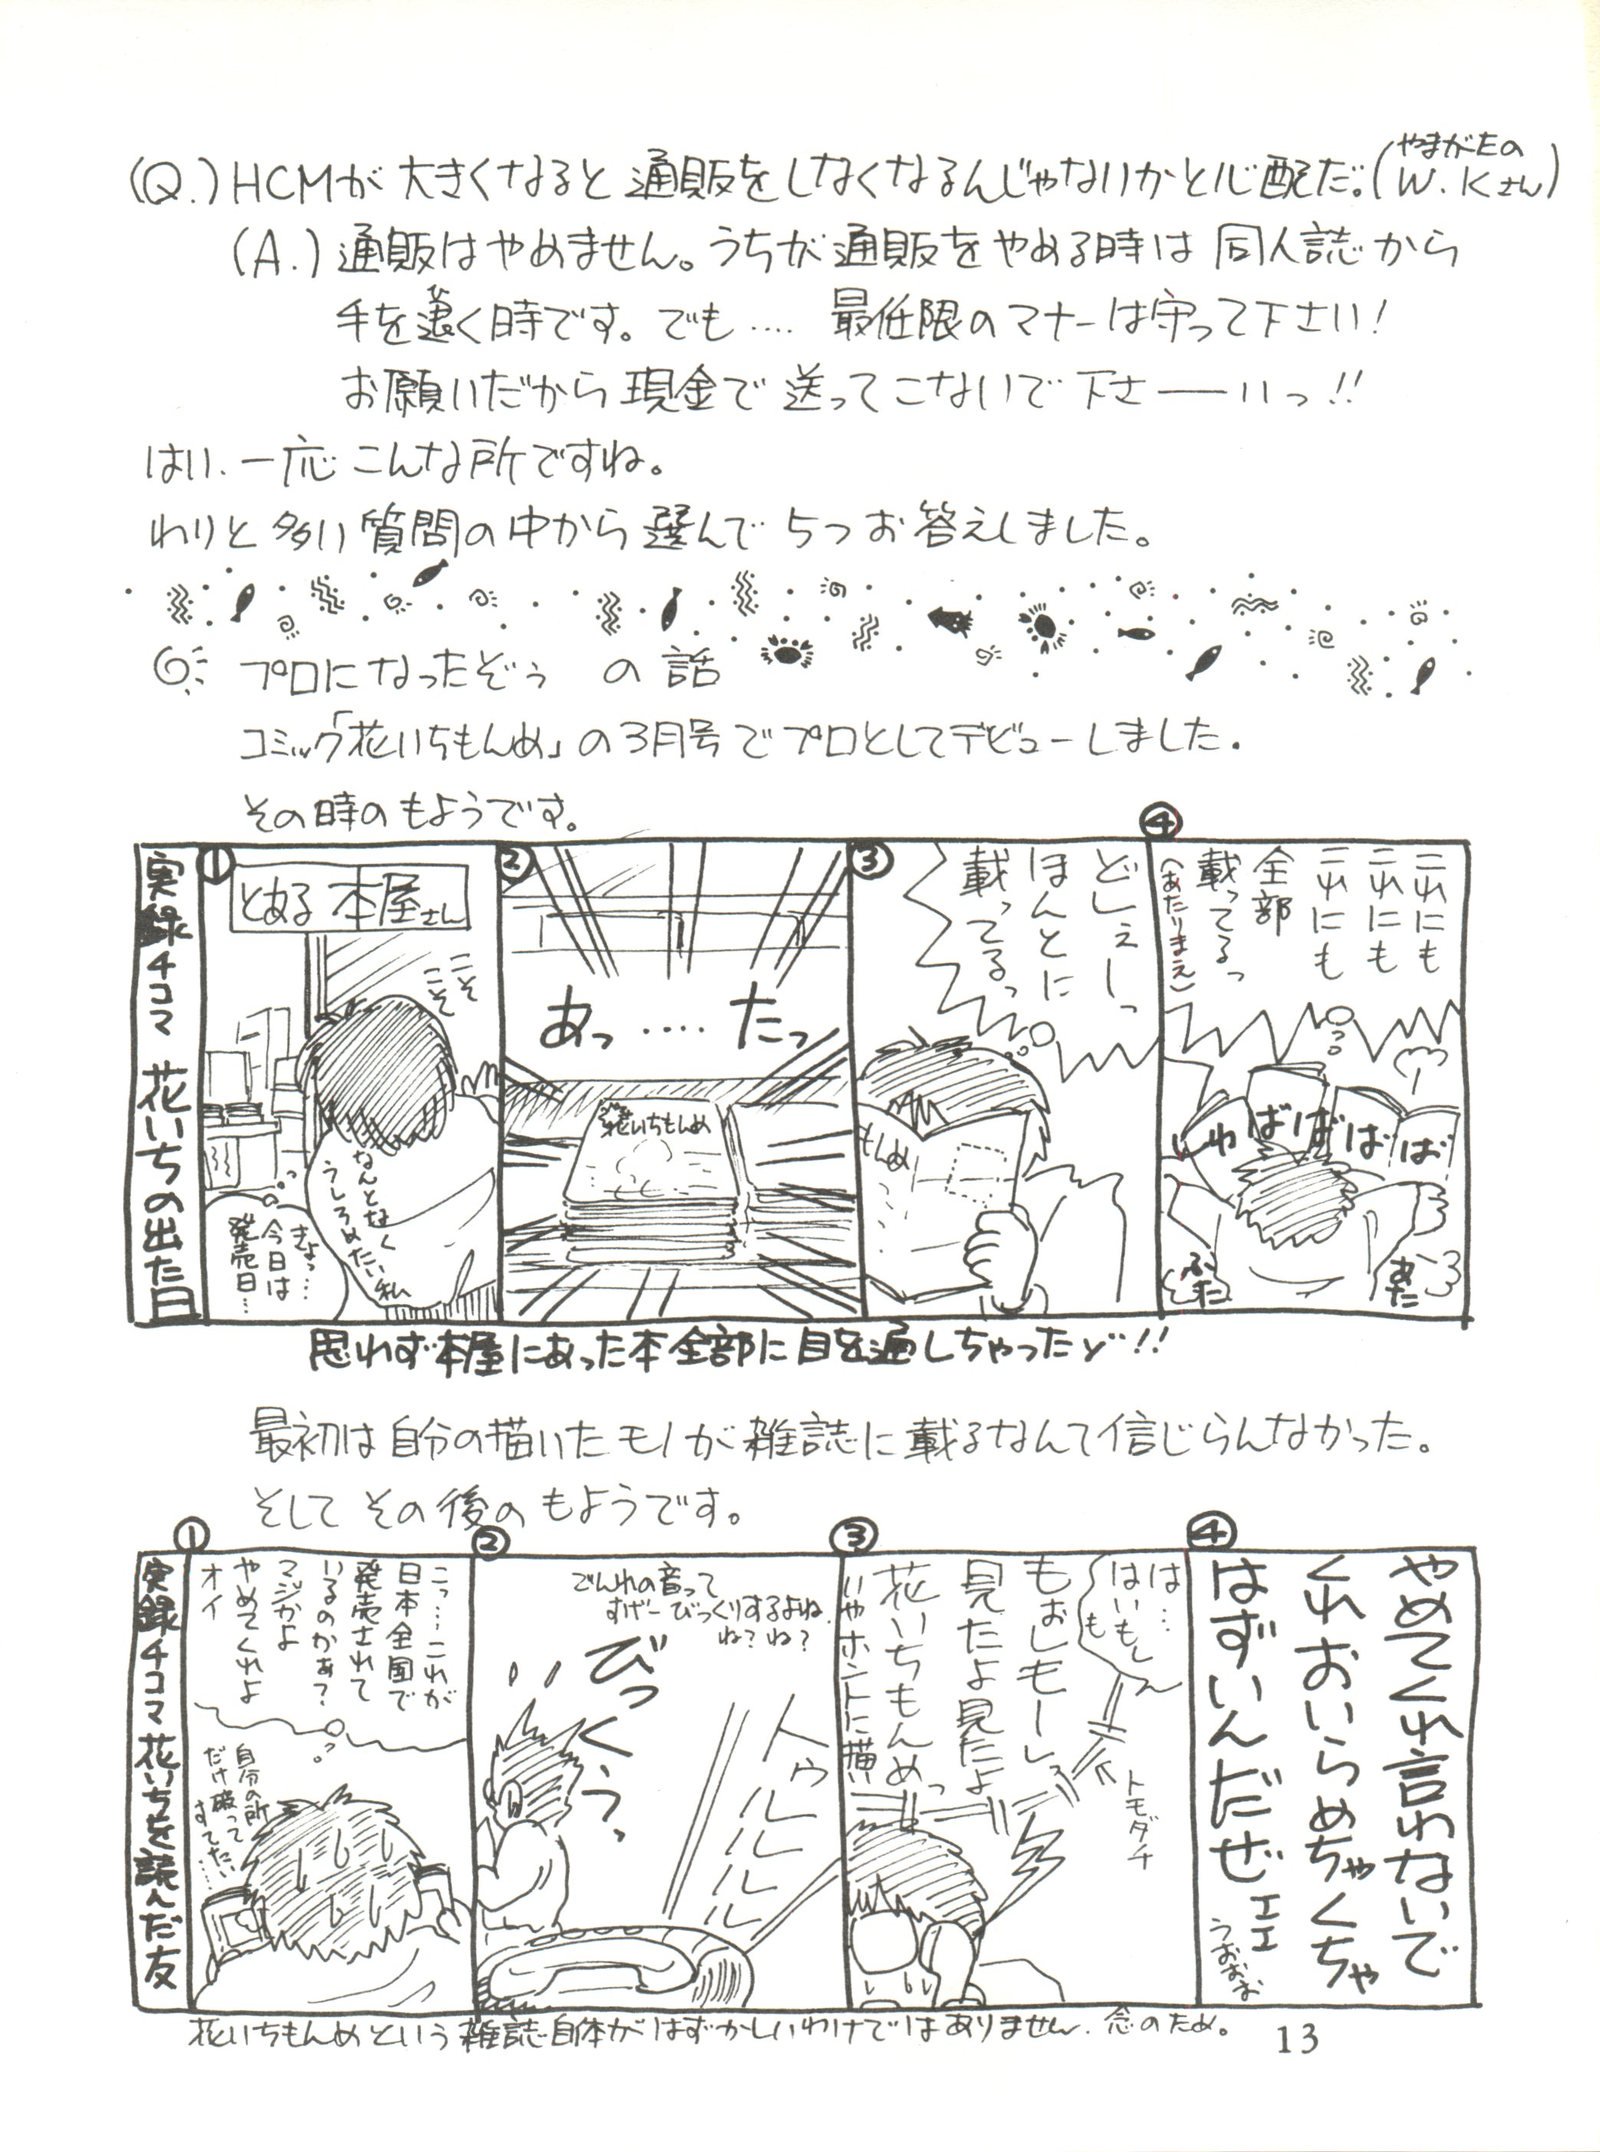 (Q.) HCMが大きくなると通販をしなくなるんじゃないかと心配だ。(やまがたの W.Kさん)
(A.) 通販はやめません。うちが通販をやめる時は同人誌から
手を退く時です。でも‥‥最低限のマナーは守って下さい!
お願いだから現金で送ってこないで下さ――いっ!!
はい、一応こんな所ですね。
わりと多い質問の中から選んで5つお答えしました。
プロになったぞぅ の話
コミック「花いちもんめ」の3月号でプロとしてデビューしました.
その時のもようです。
実録4コマ 花いちの出た日
①
とある本屋さん
こそ
こそ
なんとなく
うしろめたい私
きょっ…
今日は
発売日…
②
あっ ‥‥ たっ
花いちもんめ
③
どしぇーっ
ほんとに
載ってるっ
もんめ
④
これにも
これにも
これにも
全部
載ってるっ
(あたりまえ)
しゅばばばば
ふた
あた
思わず本屋にあった本全部に目を通しちゃったゾ!!
最初は自分の描いたモノが雑誌に載るなんて信じらんなかった。
そしてその後のもようです。
実録4コマ 花いちを読んだ友
①
こっ…これが
日本全国で
発売されて
いるのかぁ?
マジかよ
やめてくれよ
オイ
自分の所
だけ破って
すてたい…
②
でんわの音って
すげーびっくりするよね.
ね?ね?
びっくぅっ
トゥルルルルル
③
は…
はいもし
も
もぉしもーしっ
見たよ見たよ
花いちもんめっ
いやホントに描い
トモダチ
④
やめてくれ言わないで
くれおいらめちゃくちゃ
はずいんだぜェェ
うおおお
花いちもんめという雑誌自体がはずかしいわけではありません.念のため。
13